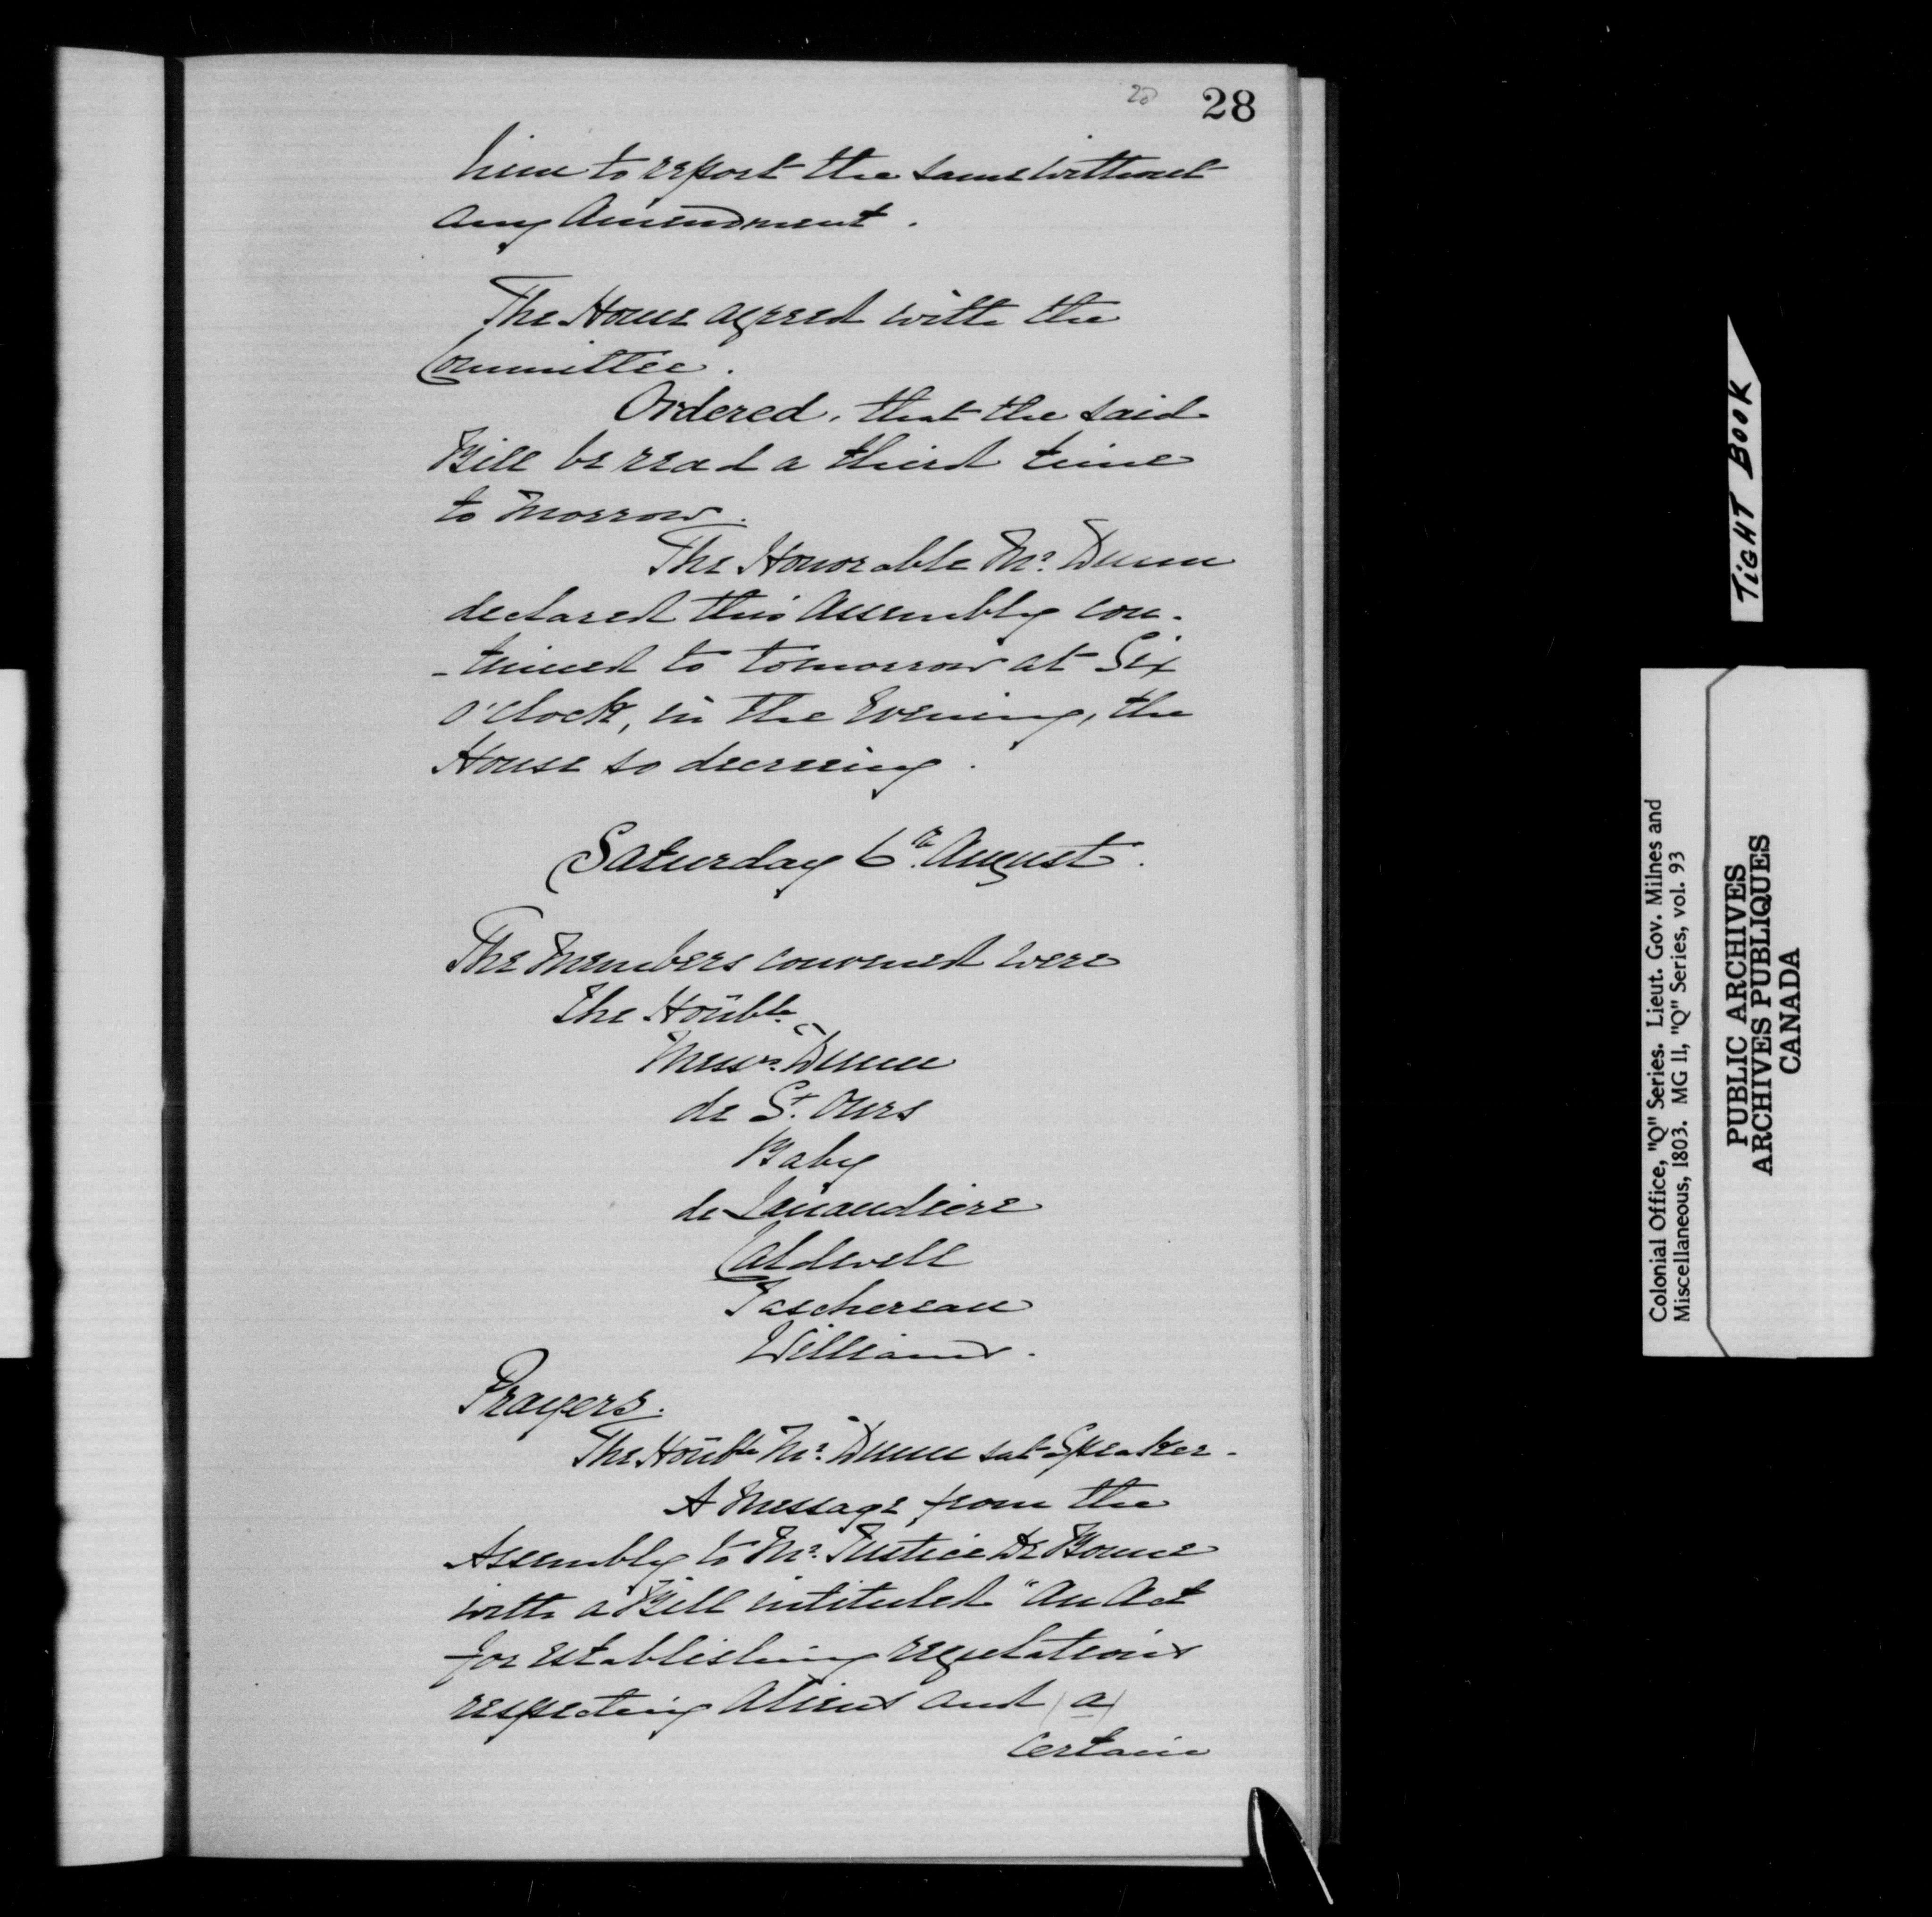 20 28
him to report the same without
any Amendment.
The House agreed with the
Committee.
Ordered, that the said
Bill be read a third time
to Morrow.
The Honorable Mr. Dunn
declared this Assembly con-
-tinued to tomorrow at Six
o'clock, in the Evening, the
House so decreeing.
Saturday 6th. August.
The Members convened were
The Honble.
Messrs. Dunn
de St. Ours
Baby
de Lanaudiere
Caldwell
Taschereau
Williams.
Prayers.
The Honble Mr. Dunn sat Speaker.
A Message from the
Assembly to Mr. Justice De Bonne
with a Bill intituled "An Act
for establishing regulations
respecting Aliens and (a)
certain
TIGHT BOOK
Colonial Office, "Q" Series. Lieut. Gov. Milnes and
Miscellaneous, 1803. MG 11, "Q" Series, vol. 93
PUBLIC ARCHIVES
ARCHIVES PUBLIQUES
CANADA